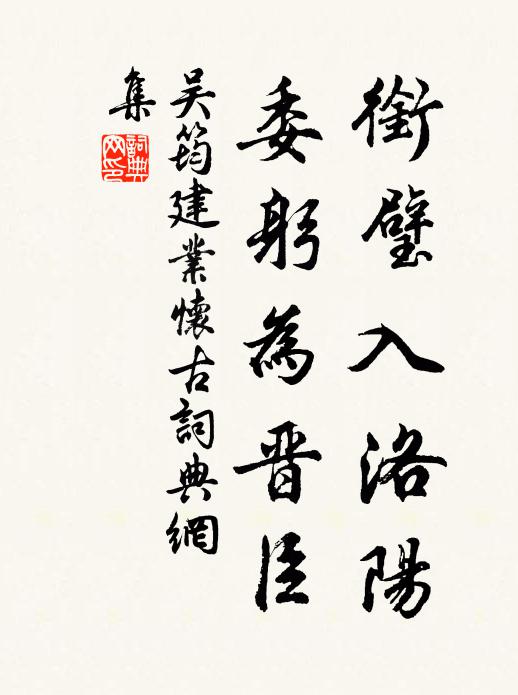 銜璧入洛陽
委躬為晋臣
吴筠建業懷古詞典網
集
詞典
网印